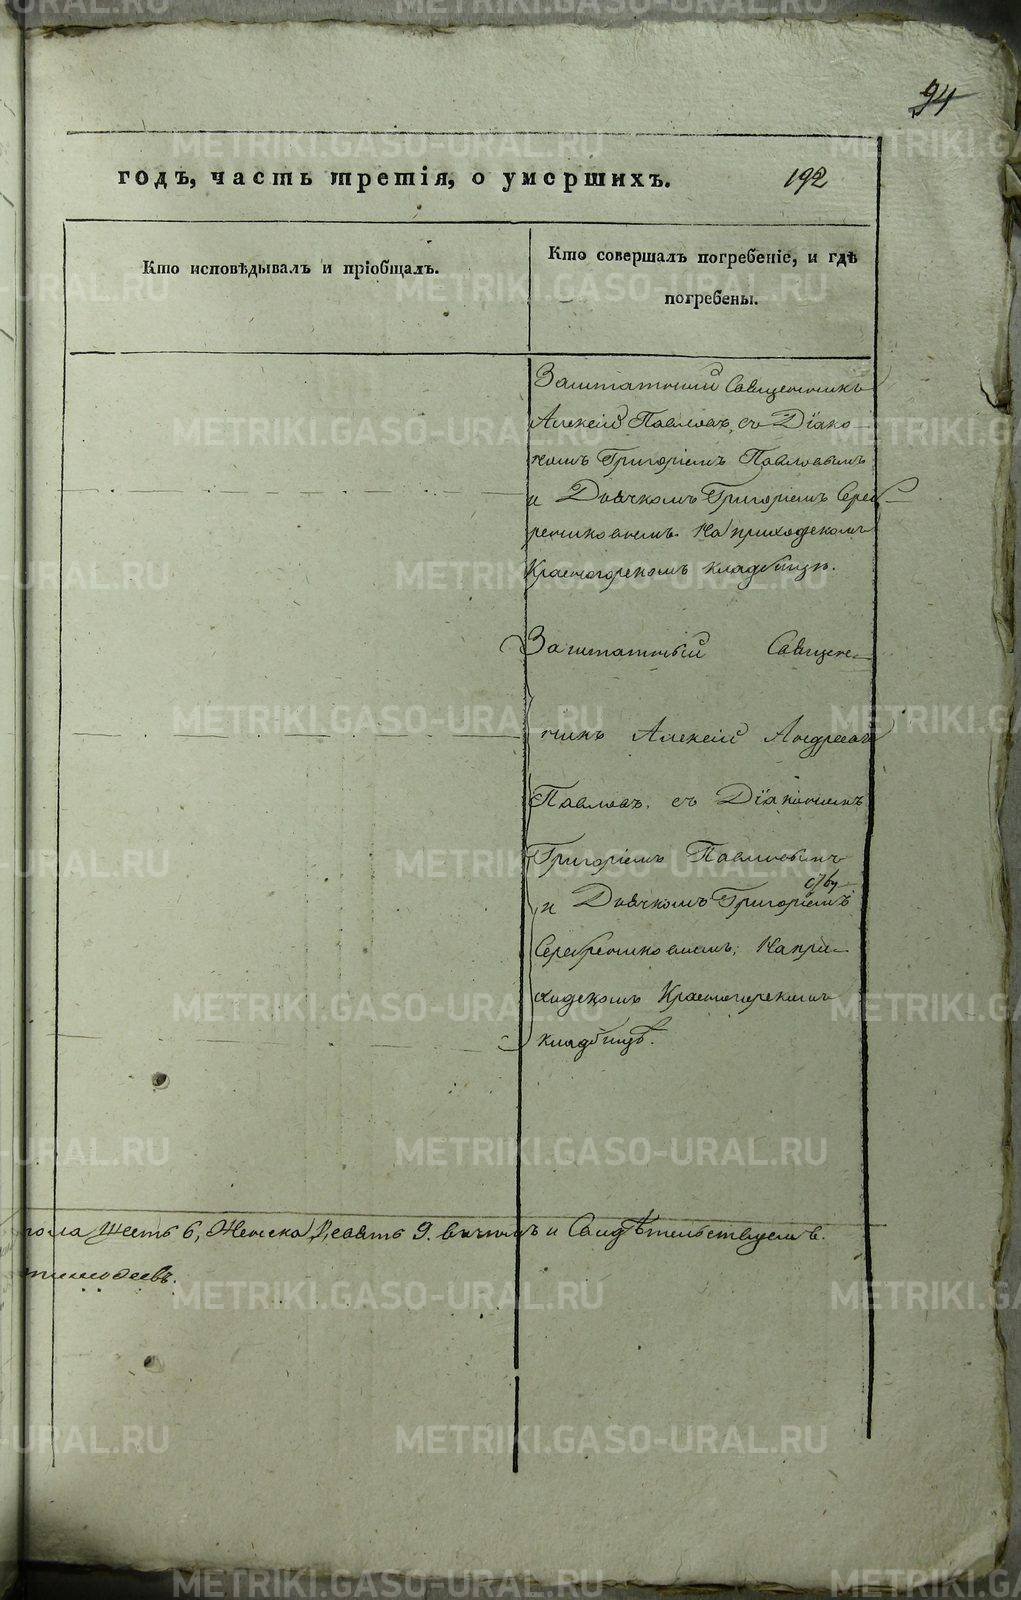 94
годъ, часть третія, о умершихъ.
192
Кто исповѣдывалъ и пріобщалъ.
Кто совершалъ погребеніе, и гдѣ
погребены.
Заштатный Священникъ
Алексій Павловъ, съ Діако-
номъ Григоріемъ Павловымъ
и Дьячкомъ Григоріемъ Сереб-
рениковымъ на приходскомъ
Красногорскомъ кладбищѣ.
Заштатный Священ-
никъ Алексій Андреевъ
Павловъ, съ Діакономъ
Григоріемъ Павловымъ
и Дьячкомъ Григоріемъ
Серебрениковымъ, на при-
ходскомъ Красногорскомъ
кладбищѣ.
пола шесть 6, Женска девять 9. и Свидѣтельствуемъ.
METRIKI.GASO-URAL.RU